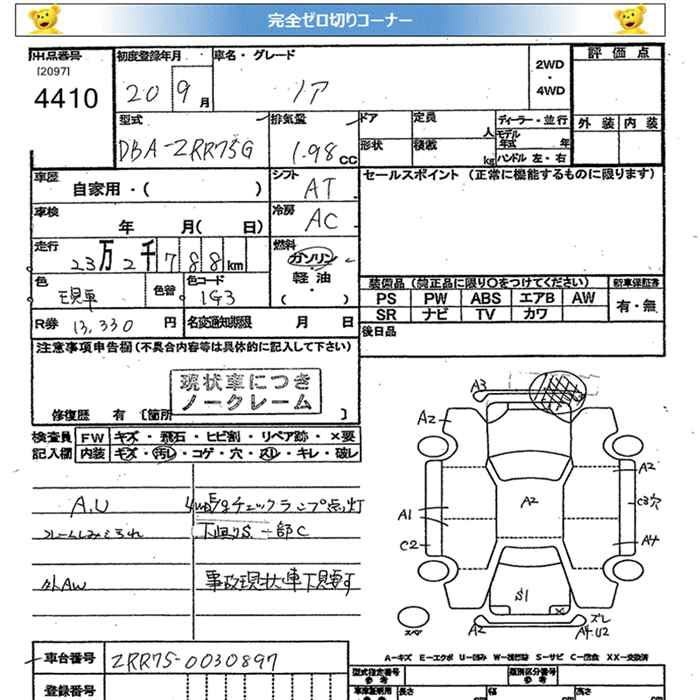 完全ゼロ切りコーナー
出品番号 初度登録年月 車名・グレード 2WD ・ 4WD 評価点
[2097]
4410 20 9月 ノア
外装 内装
型式 排気量 ドア 定員 人 ディーラー・並行
DBA-ZRR75G 1.98 CC 形状 積載 kg モデル年式 年
ハンドル 左・右
車歴 自家用・( ) シフト AT セールスポイント (正常に機能するものに限ります)
車検 年 月( 日) 冷房 AC
走行 23万2千788km 燃料 ガソリン 軽油 ・ ( )
色 現車 色替 色コード 1G3
装備品 (純正品に限り○をつけてください) 新車保証書
PS PW ABS エアB AW 有・無
SR ナビ TV カワ
R券 13,330 円 名変通知期限 月 日 後日品
注意事項申告欄 (不具合内容等は具体的に記入して下さい)
現状車につき
ノークレーム
修復歴 有 [箇所 ]
検査員 FW キズ・飛石・ヒビ割・リペア跡・×要
記入欄 内装 キズ・汚レ・コゲ・穴・スレ・キレ・破レ
A.U
チェックランプ点灯
下回りS 一部C
外AW
事故現状車下見要す
A3
A2
A2
A2
A1
C3穴
C2
A4
S1
×
スペア
A2
ズレ
A4.U2
A-キズ E-エクボ U-凹み W-補修跡 S-サビ C-腐食 XX-交換済
車台番号 ZRR75-0030897
型式指定番号 参考 類別区分番号 参考
登録番号 長さ 幅 高さ
cm cm cm